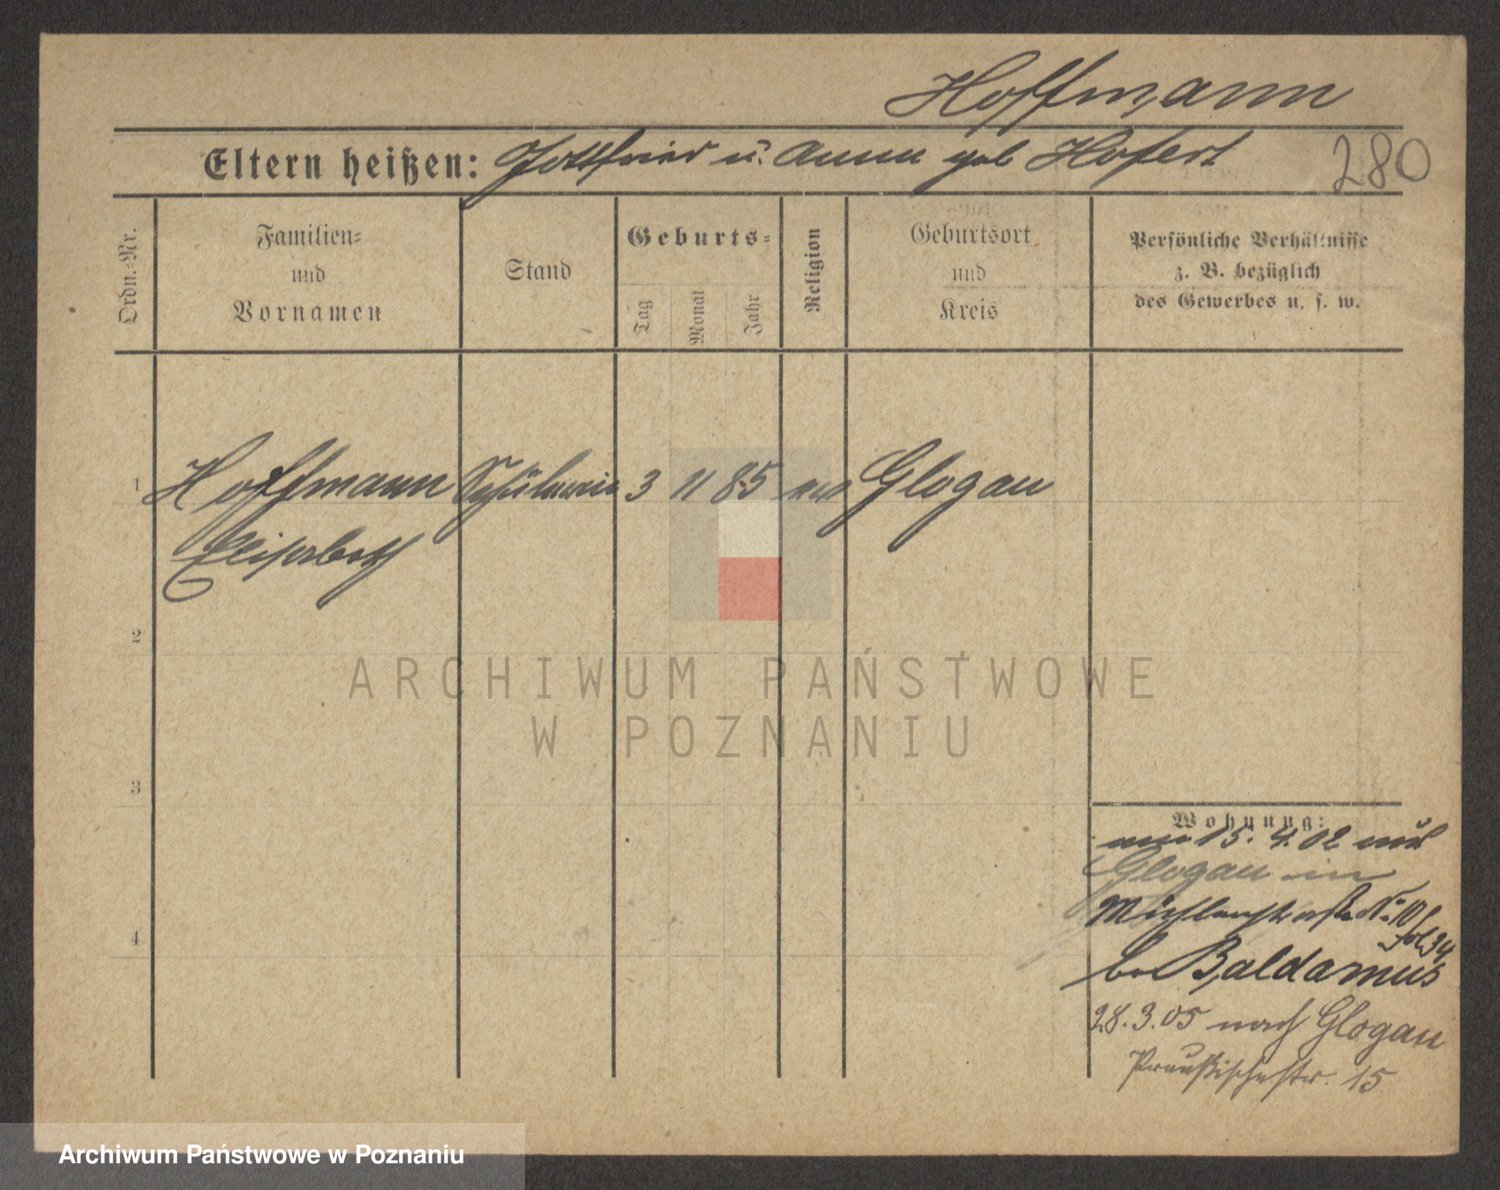 Hoffmann
Eltern heißen: Gottfried u. Anna geb Hofert
280
Ordn.-Nr.
Familien-
und
Vornamen
Stand
Geburts-
Tag
Monat
Jahr
Religion
Geburtsort
und
Kreis
Persönliche Verhältnisse
z. B. bezüglich
des Gewerbes u. s. w.
1
Hoffmann Schülerin 3 11 85 Glogau
Elisabeth
2
3
4
Wohnung:
15. 4. 02 aus
Glogau in
Mühlenstraße No 10
fol 34
bei Baldamus
28. 3. 05 nach Glogau
Preußischestr. 15
ARCHIWUM PAŃSTWOWE
W POZNANIU
Archiwum Państwowe w Poznaniu